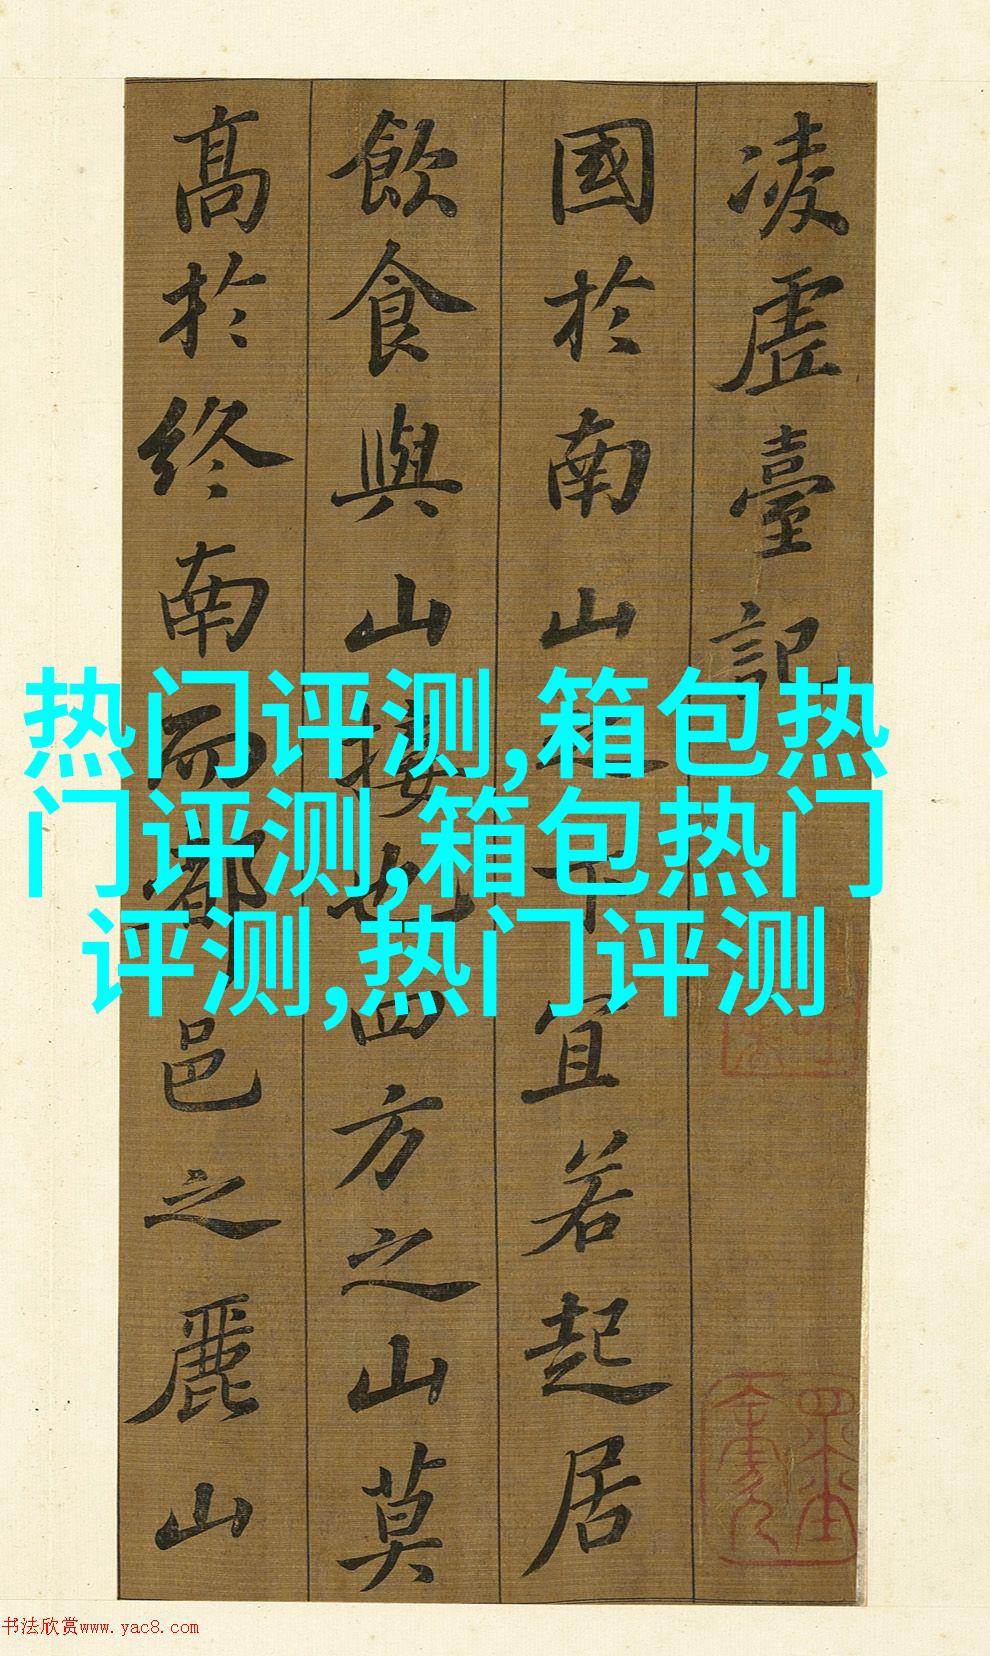 凌虛臺記
國於南山之下宜若起居
飲食與山接也四方之山莫
高於終南而都邑之麗山
热门评测,箱包热
门评测,箱包热门
评测,热门评测
书法欣赏www.yac8.com